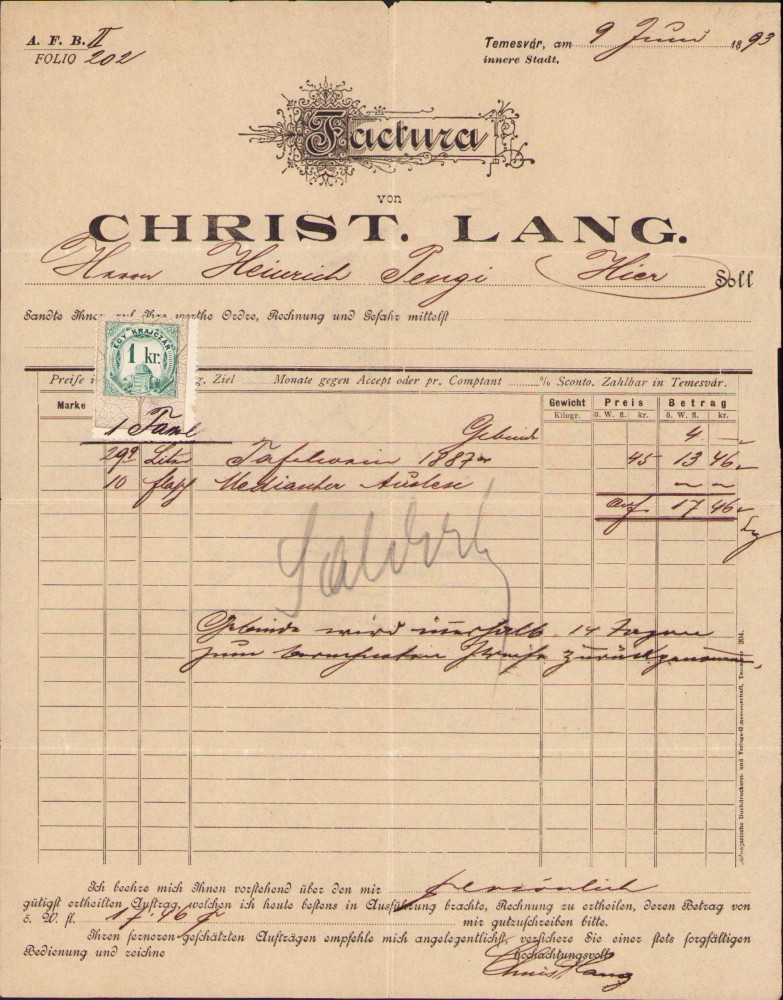 A. F. B. II
FOLIO 202
Temesvár, am 9 Juni 1893
innere Stadt,
Factura
von
CHRIST. LANG.
Herrn Heinrich Hier Soll
Sandte Ihnen auf Ihre werthe Ordre, Rechnung und Gefahr mittelst
EGY KRAJCZÁR
1 kr.
Preise Ziel Monate gegen Accept oder pr. Comptant % Sconto. Zahlbar in Temesvár.
Marke Gewicht Preis Betrag
Kilogr. ö. W. fl. kr. ö. W. fl. kr.
1 Gebinde 4 –
29⁹ Liter Tafelwein 1887er 45 13 46
10 Auslese – –
17 46
Gebinde wird innerhalb 14 Tagen
zum berechneten Preise zurückgenommen.
Ich beehre mich Ihnen vorstehend über den mir persönlich
gütigst ertheilten Auftrag, welchen ich heute bestens in Ausführung brachte, Rechnung zu ertheilen, deren Betrag von
ö. W. fl. 17.46 mir gutzuschreiben bitte.
Ihren ferneren geschätzten Aufträgen empfehle mich angelegentlichst, versichere Sie einer stets sorgfältigen
Bedienung und zeichne Hochachtungsvoll
Christ Lang